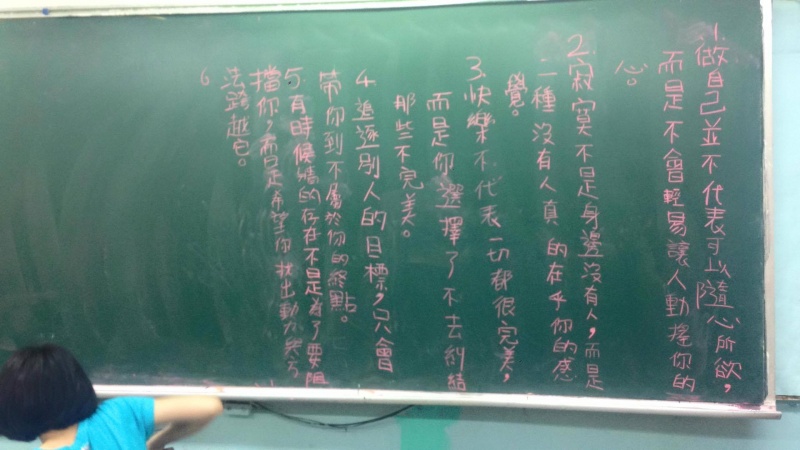 1. 做自己並不代表可以隨心所欲，
而是不會輕易讓人動搖你的
心。
2. 寂寞不是身邊沒有人，而是
一種沒有人真的在乎你的感
覺。
3. 快樂不代表一切都很完美，
而是你選擇了不去糾結
那些不完美。
4. 追逐別人的目標，只會
帶你到不屬於你的終點。
5. 有時候牆的存在不是為了要阻
擋你，而是希望你找出動力與方
法跨越它。
6